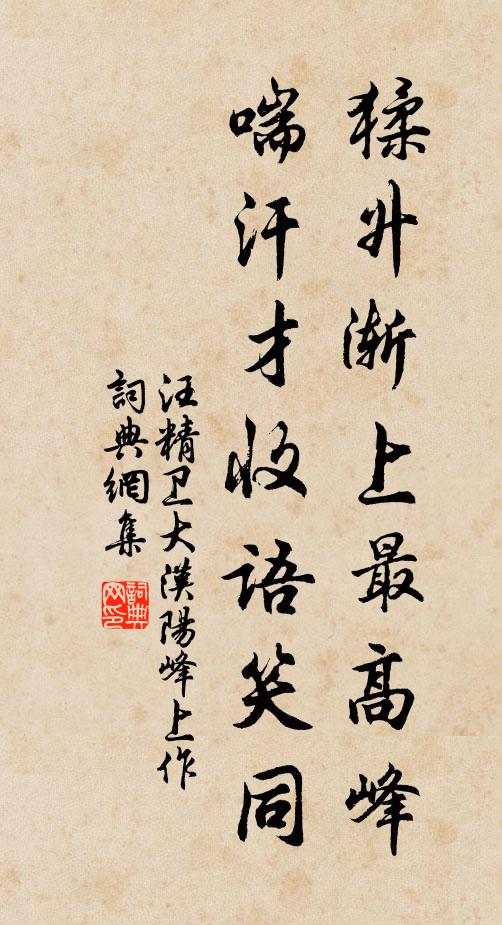 猱升渐上最高峰
喘汗才收語笑同
汪精卫大漢陽峰上作
詞典網集
詞典
网印